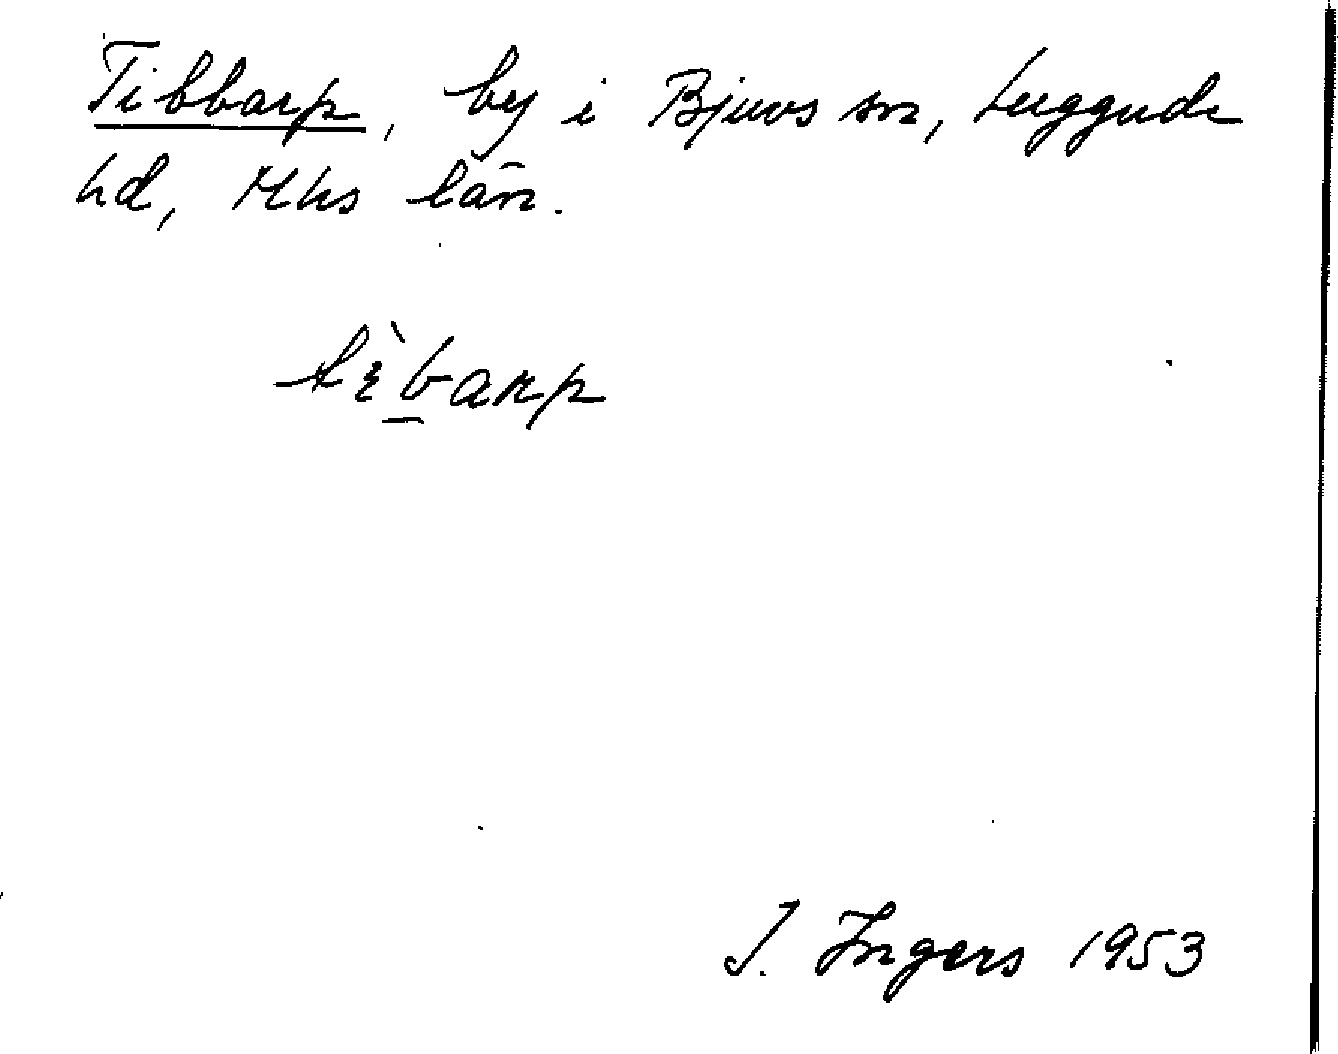 Tibbarp, by i Bjuvs sn, Luggude
hd, Mhs län.
tɛ̀barp
I. Ingers 1953